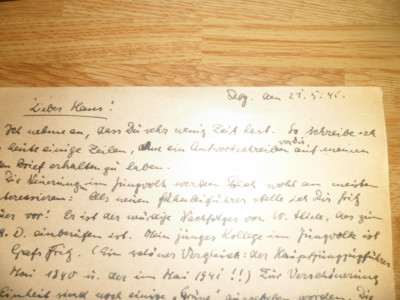 den 21.5.41.
Lieber Hans!
Ich nehme an, dass Du sehr wenig Zeit hast. So schreibe ich
heute einige Zeilen, ohne ein Antwortschreiben auf meinen
vorher
Brief erhalten zu haben.
Die Neuerung im Jungvolk werden Dich wohl am meisten
interessieren: Als neuen Fähnleinführer stelle ich Dir Fritz
vor! Er ist der würdige Nachfolger von W. der zum
A. D. einberufen ist. Mein junges Kollege im Jungvolk ist
Graf Fritz. (Ein schönes Vergleich: der Hauptjungzugführer
Mai 1940 u. der im Mai 1941!!) Zur Verschönerung
Einheit sind noch einige